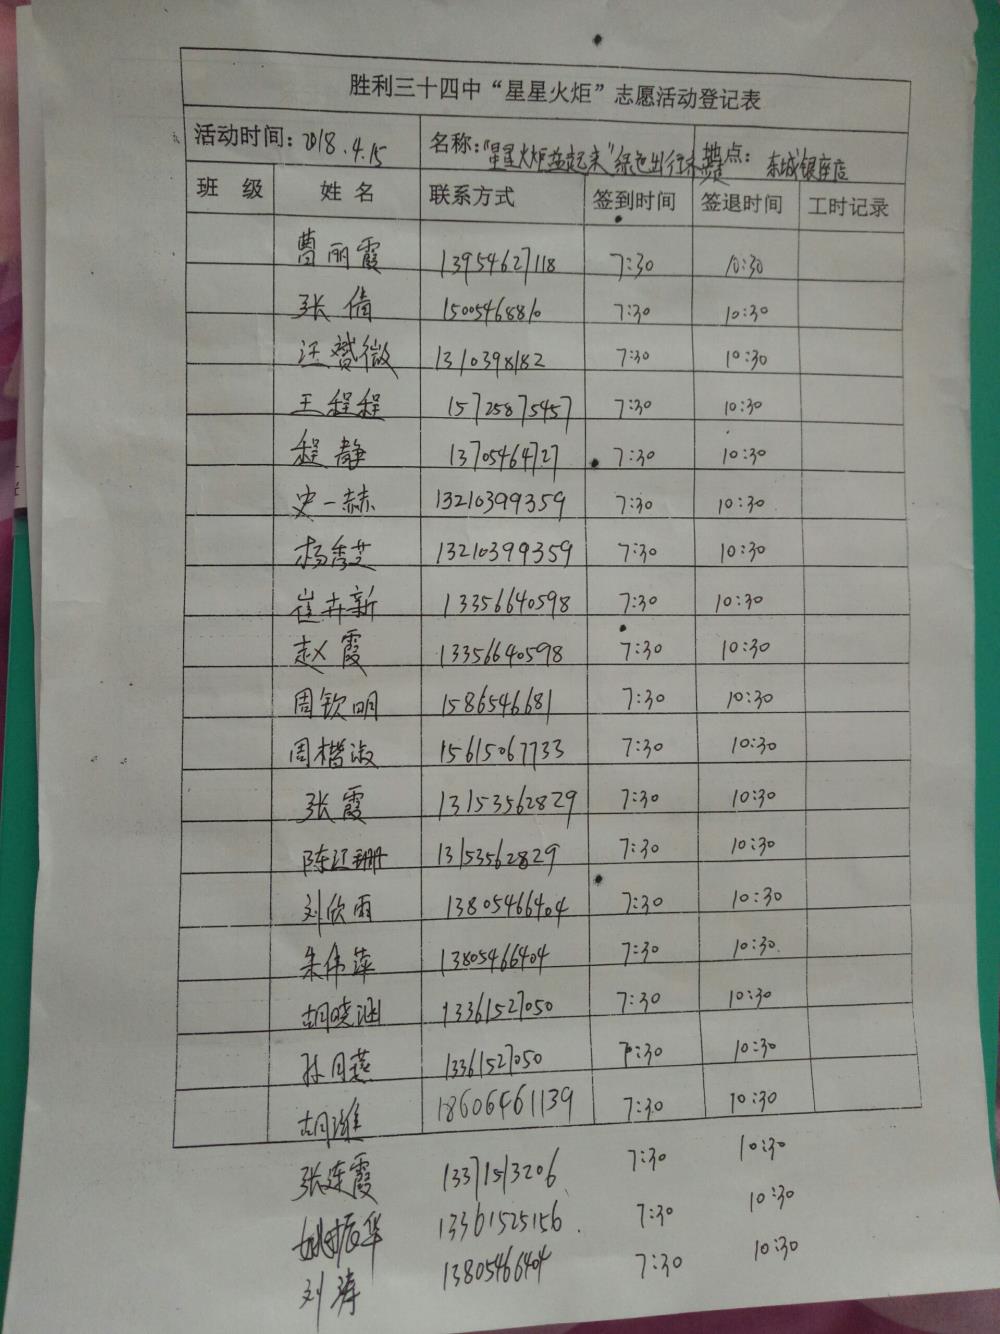 胜利三十四中“星星火炬”志愿活动登记表
活动时间：2018.4.15 名称：“星星火炬益起来”绿色出行 地点：东城银座店
班 级 姓 名 联系方式 签到时间 签退时间 工时记录
曹丽霞 13954627118 7:30 10:30
张倩 15005468810 7:30 10:30
汪赟薇 1310398182 7:30 10:30
王程程 15725875457 7:30 10:30
程静 13705464727 7:30 10:30
史一赫 13210399359 7:30 10:30
杨秀芝 13210399359 7:30 10:30
崔卉新 13356640598 7:30 10:30
赵霞 13356640598 7:30 10:30
周钦明 1586546681 7:30 10:30
周楷淑 15615067733 7:30 10:30
张霞 13153562829 7:30 10:30
陈江珊 13153562829 7:30 10:30
刘欣雨 13805466404 7:30 10:30
朱伟萍 13805466404 7:30 10:30
胡晓涵 13361527050 7:30 10:30
孙月燕 13361527050 7:30 10:30
胡潍 18606461139 7:30 10:30
张连霞 13371513206 7:30 10:30
姚振华 13361525156 7:30 10:30
刘涛 13805466404 7:30 10:30